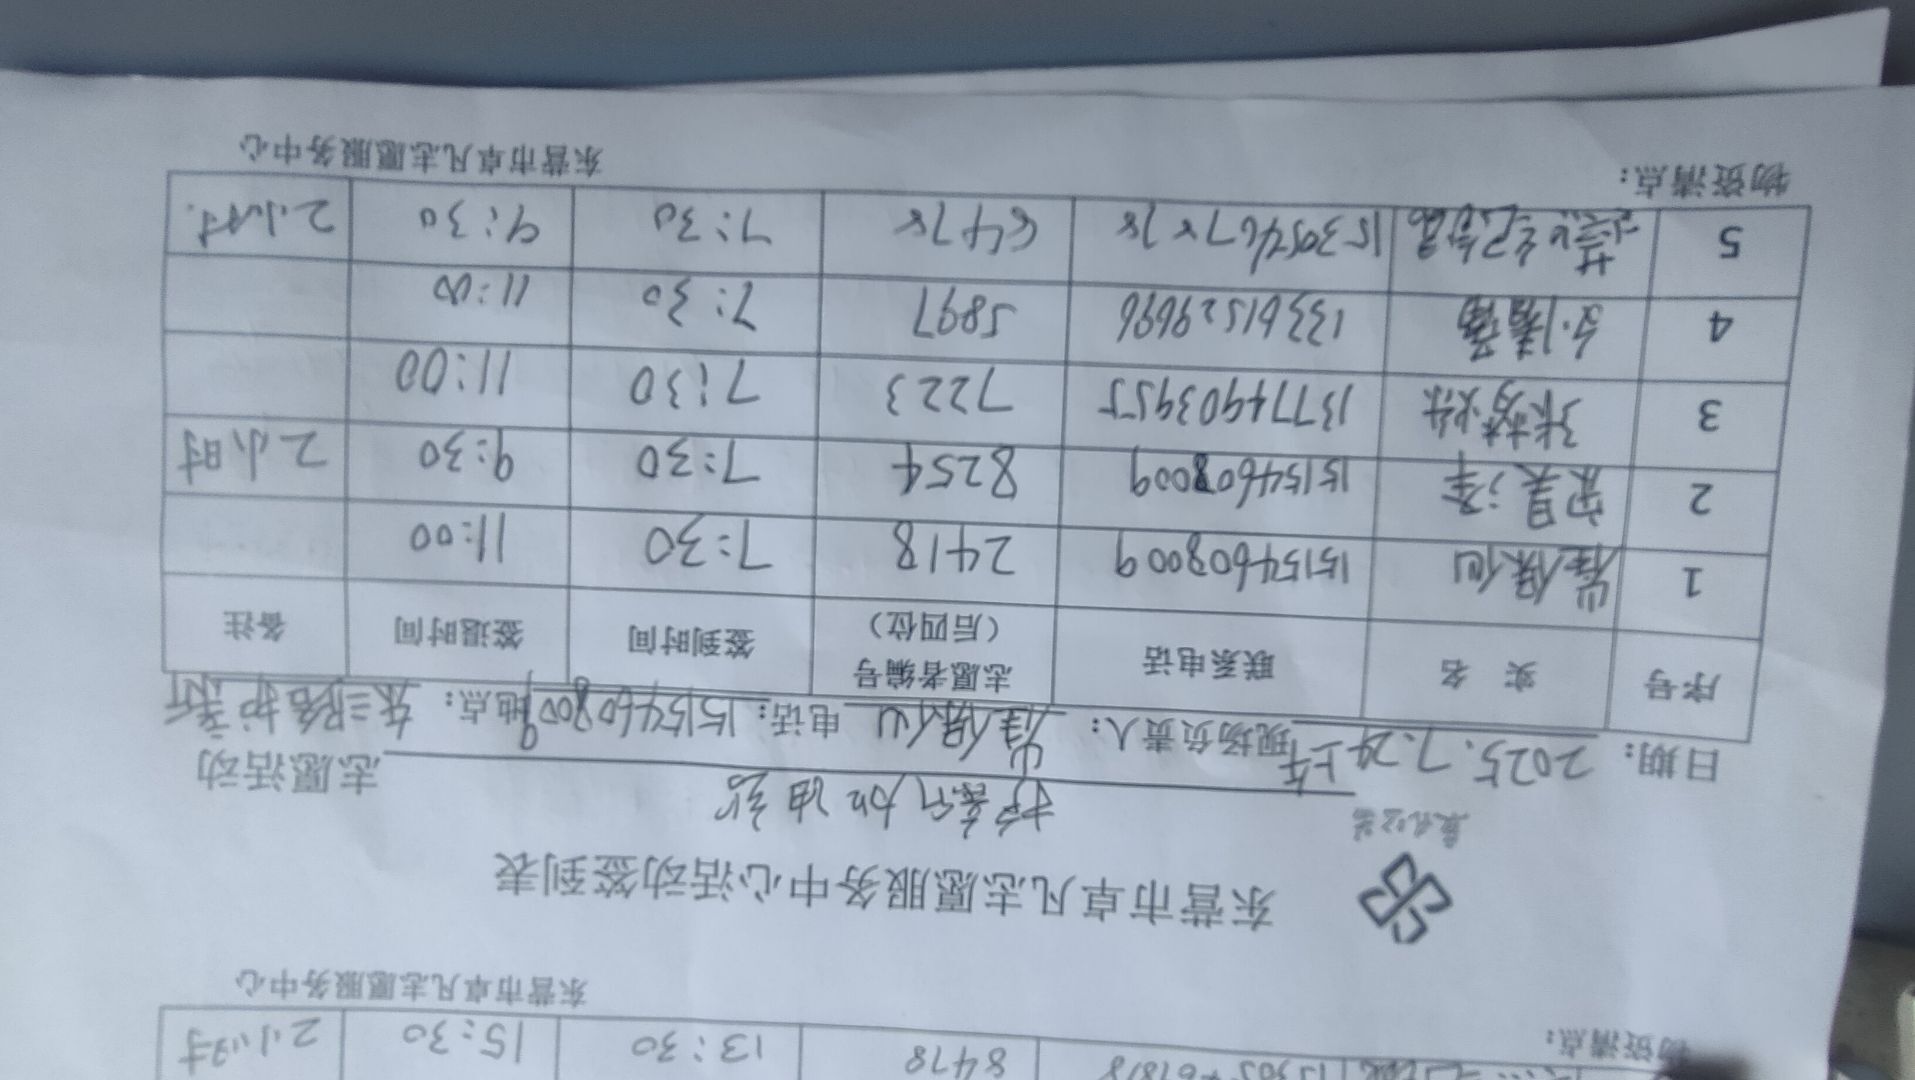 2小时 15:30 13:30 8478
物资清点: 东营市卓凡志愿服务中心
东营市卓凡志愿服务中心活动签到表
卓凡公益
护薪加油站 志愿活动
日期: 2025.7.24上午 现场负责人: 崔保仙 电话: 15154608009 地点: 东三路护薪
序号 实名 联系电话 志愿者编号(后四位) 签到时间 签退时间 备注
1 崔保仙 15154608009 2418 7:30 11:00
2 15154608009 8254 7:30 9:30 2小时
3 13774903955 7223 7:30 11:00
4 13361529696 5897 7:30 11:00
5 7:30 9:30 2小时
物资清点: 东营市卓凡志愿服务中心